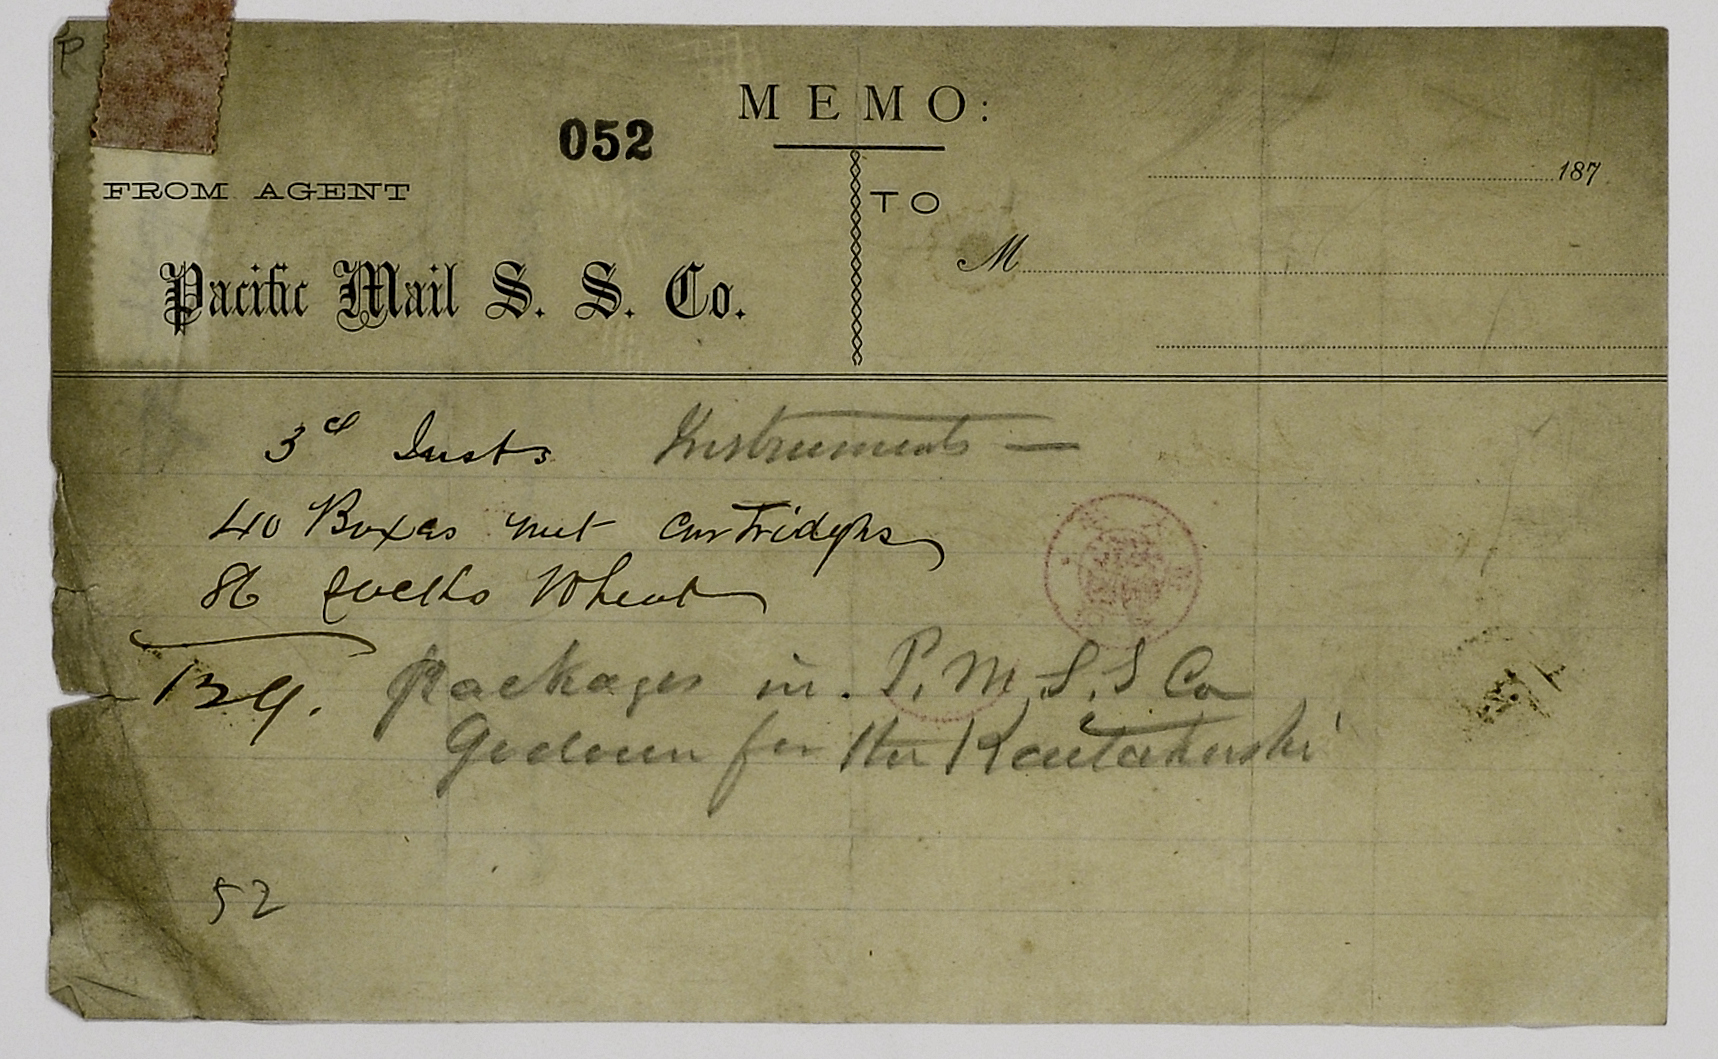 P
MEMO:
052
187
FROM AGENT
TO
Pacific Mail S. S. Co.
M
3 Insts Instruments —
40 Boxes met cartridges
86 sacks Wheat
129. packages in. P. M. S. S Co
Godown for the Kaitakushi
52